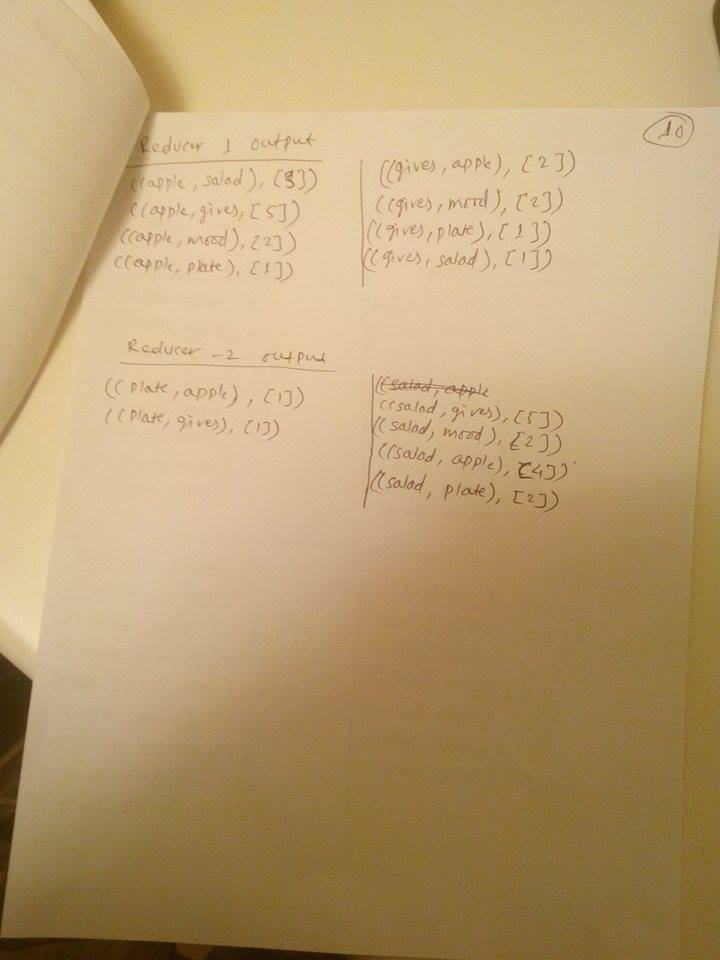 10
Reducer 1 output
((apple, salad), [3])
((apple, gives, [5])
((apple, mood), [2])
((apple, plate), [1])
((gives, apple), [2])
((gives, mood), [2])
((gives, plate), [1])
((gives, salad), [1])
Reducer -2 output
((plate, apple), [1])
((plate, gives), [1])
((salad, apple
((salad, gives), [5])
((salad, mood), [2])
((salad, apple), [4])
((salad, plate), [2])